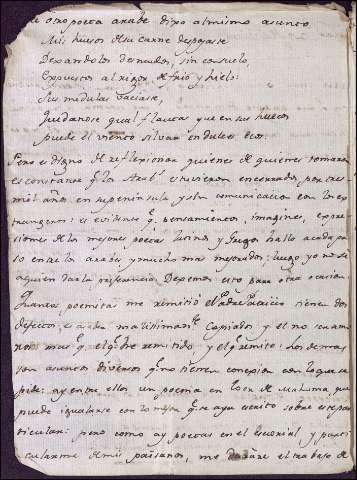 otro poeta arabe dixo al mismo asunto
Mis huesos de su carne despojaste
Dexandolos desnudos, sin consuelo,
Expuestos al rigor de frio y hielo:
Sus medulas vaciaste,
Quedandose qual flautas que en sus huecos
puede el viento silvar en dulces ecos.
Pero es digno de reflexionar quienes de quienes tomaron
es constante q.e los Arab.s estuvieron encerrados por tres
mil años en su peninsula y sin comunicacion con los es
trangeros: es evidente q.e pensamientos, imagines, expre
siones de los mejores poetas latinos y Griegos hallo acada pa
so en los arabes y mucho mas mejorados: luego yo no se
aquien dar la preferencia. Dejemos esto para otra ocasion.
Quanta poemita me remitió el Padre tiene dos
defectos, es a saber Copiados y el no
mas q.e el q.e he remitido y el q.e remito: los demas
son asuntos diversos q.e no tienen conexion con lo que se
pide: ay entre ellos un poema en loor de Mahoma, que
puede igualarse con lo mejor q.e se aya escrito sobre este par
ticular: pero como ay poetas en el Escorial y parti
cularme de mis paisanos, me el trabajo de